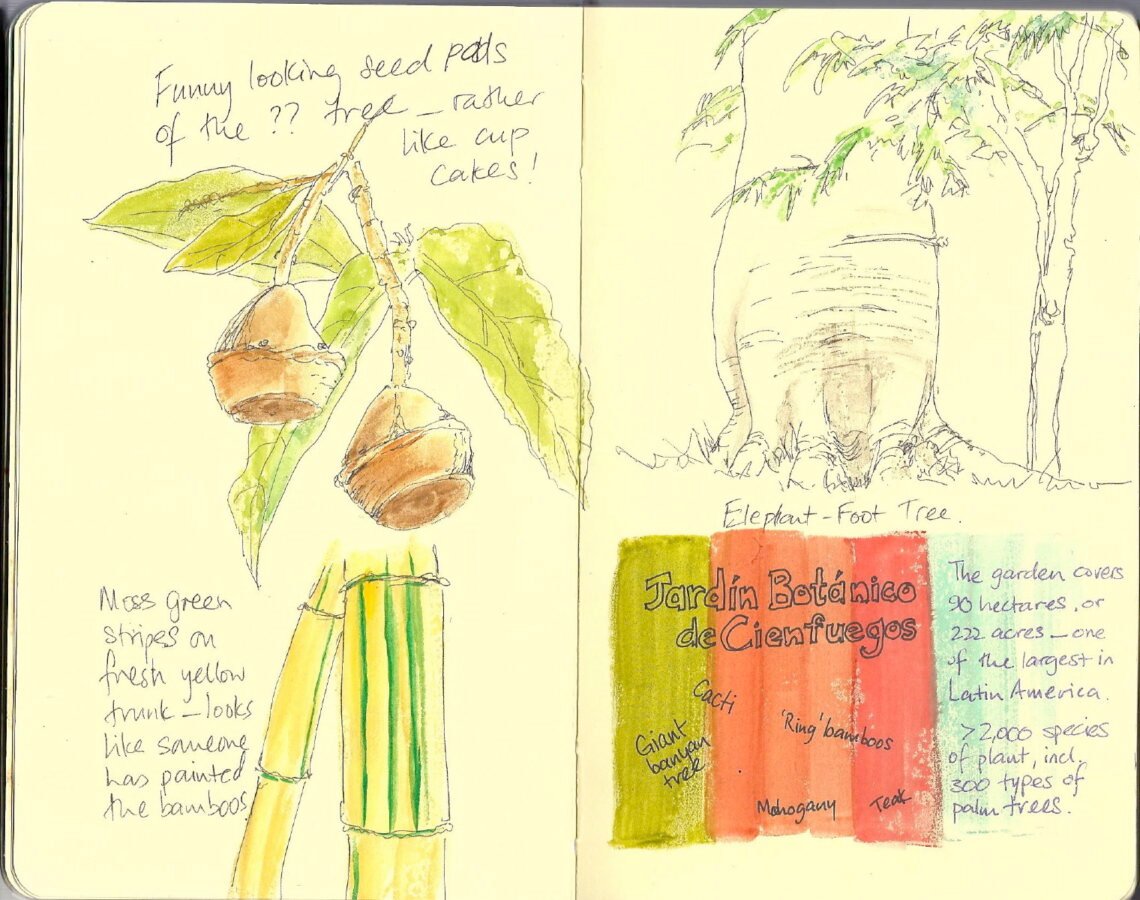 Funny looking seed pods
of the ?? tree – rather
like cup
cakes!
Moss green
stripes on
fresh yellow
trunk – looks
like someone
has painted
the bamboos
Elephant-Foot Tree.
Jardín Botánico
de Cienfuegos
Cacti
Giant
banyan
tree
'Ring' bamboos
Mahogany
Teak
The garden covers
90 hectares, or
222 acres – one
of the largest in
Latin America.
>2,000 species
of plant, incl.
300 types of
palm trees.